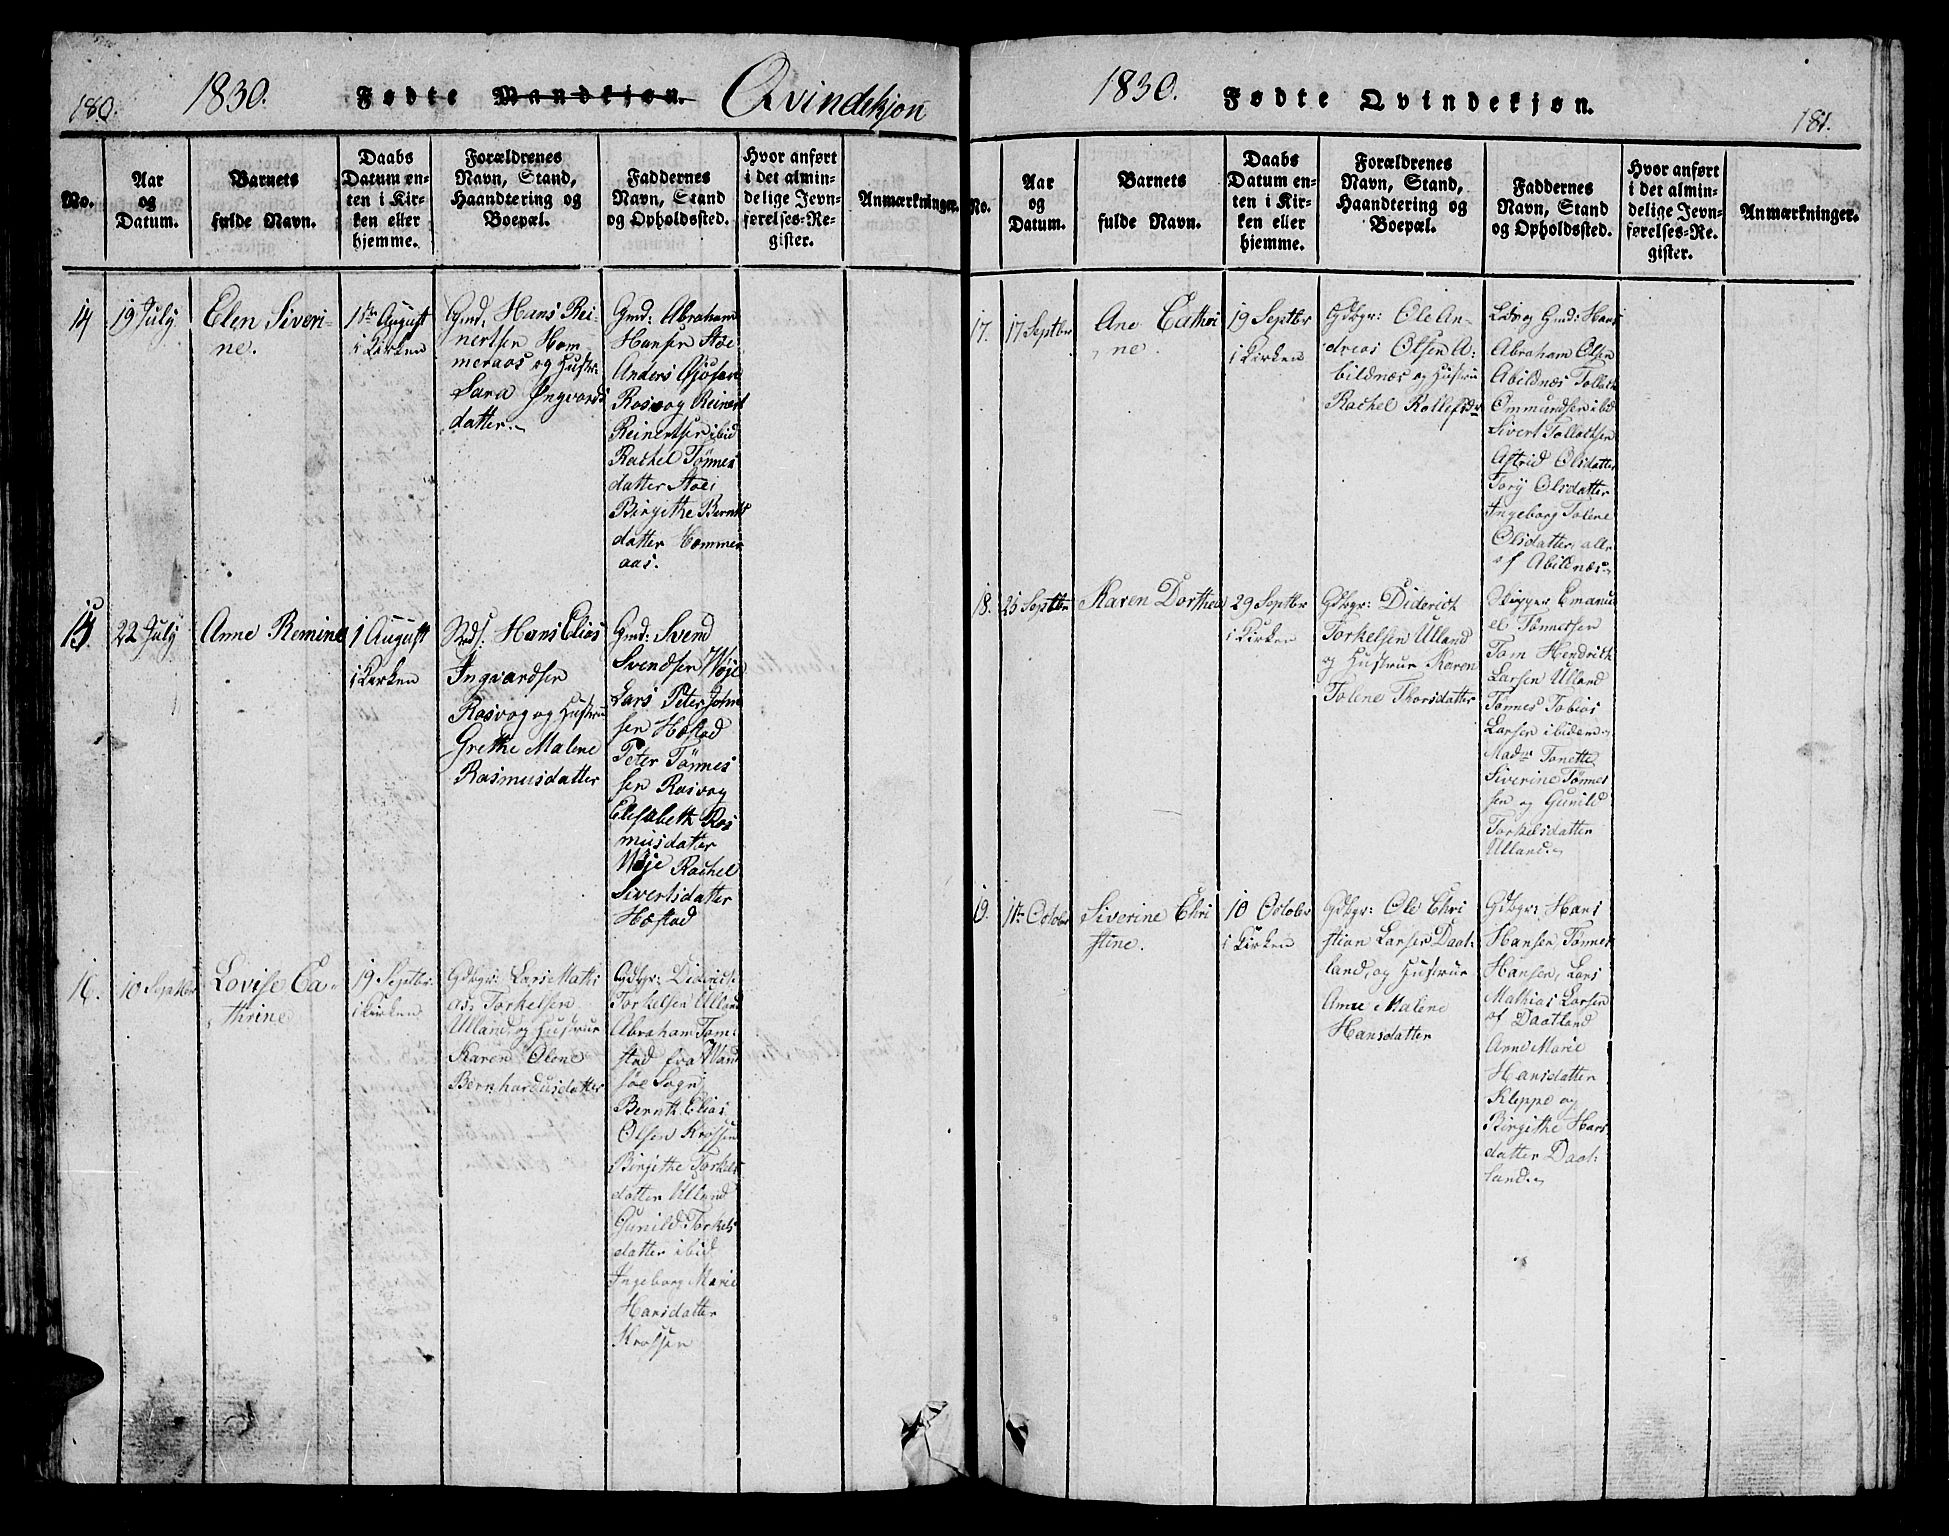 180.
1830.
Fødte Mandkjøn. Qvindekjøn
No.
Aar
og
Datum.
Barnets
fulde Navn.
Daabs
Datum en-
ten i Kir-
ken eller
hjemme.
Forældrenes
Navn, Stand,
Haandtering og
Boepæl.
Faddernes
Navn, Stand
og Opholdssted.
Hvor anført
i det almin-
delige Jevn-
førelses-Re-
gister.
Anmærkninger.
14
19 July
Elen Siveri-
ne.
1ste August
i Kirken
Gmd. Hans Rei-
nertsen Hom-
meraas og Hustr:
Sara Ingvards
datter.
Gmd: Abraham
Hansen Stoe
Anders
Rosvog Reinert
Reinertsen ibid
Rachel Tønnes
datter Stoei
Birgithe Bernts
datter Commer
aas.
15
22 July
Anne Remine
1 August
i Kirken
Hans Elias
Ingvardsen
Rosvog og Hustru
Grethe Malene
Rasmusdatter
Gmd: Svend
Svendsen Nøje
Lars Peter John
sen Hæstad
Peter Tønnes
sen Rosvog
Elisabeth Ras
musdatter
Nøje Rachel
Sivertsdatter
Hæstad
16.
10 Septbr
Lovise Ca-
thrine
19 Septbr.
i Kirken
Gdbgr: Lars Mathi
as Torkelsen
Ulland, og Hustrue
Karen Olene
Bernhardusdatter
Gdbgr: Diderich
Torkelsen Ulland
Abraham Tom-
stad fra Wand
søe Sogn
Bernth Elias
Olsen Krossen
Birgithe Torkels
datter Ulland
Gunild Torkels
datter ibid
Ingeborg Marie
Hansdatter
Krossen
1830.
Fødte Qvindekjøn.
181.
No.
Aar
og
Datum.
Barnets
fulde Navn.
Daabs
Datum en-
ten i Kir-
ken eller
hjemme.
Forældrenes
Navn, Stand,
Haandtering og
Boepæl.
Faddernes
Navn, Stand
og Opholdssted.
Hvor anført
i det almin-
delige Jevn-
førelses-Re-
gister.
Anmærkninger.
17.
17 Septbr
Ane Cathri
ne.
19 Septbr
i Kirken
Gdbgr: Ole An-
dreas Olsen A-
bildnæs og Hustru
Rachel Rollefsdr
og Gmd: Hans
Abraham Olsen
Abildnæs Tollach
Ommundsen ibid
Sivert Tollachsen
Astrid Olsdatter
Torj Olsdatter
Ingeborg Tolene
Olsdatter, alle
af Abildnæs
18.
25 Septbr
Karen Dorthea
29 Septbr
i Kirken
Gdbgr: Diderich
Torkelsen Ulland
og Hustrue Karen
Tolene Thorsdatter
Skipper Emanu
el Tønnesen
Tom Hendrich
Larsen Ulland
Tønnes Tobias
Larsen ibidem
Madm Tonette
Siverine Tønnes
sen og Gunild
Torkelsdatter
Ulland
19.
1ste Octobr
Siverine Chri
stine.
10 Octobr
i Kirken
Gdbgr: Ole Chri
stian Larsen Daat-
land, og Hustrue
Anne Malene
Hansdatter
Gdbgr: Hans
Hansen, Tønnes
Hansen, Lars
Mathias Larsen
af Daatland
Anne Marie
Hansdatter
Kleppe og
Birgithe Hans
datter Daat-
land